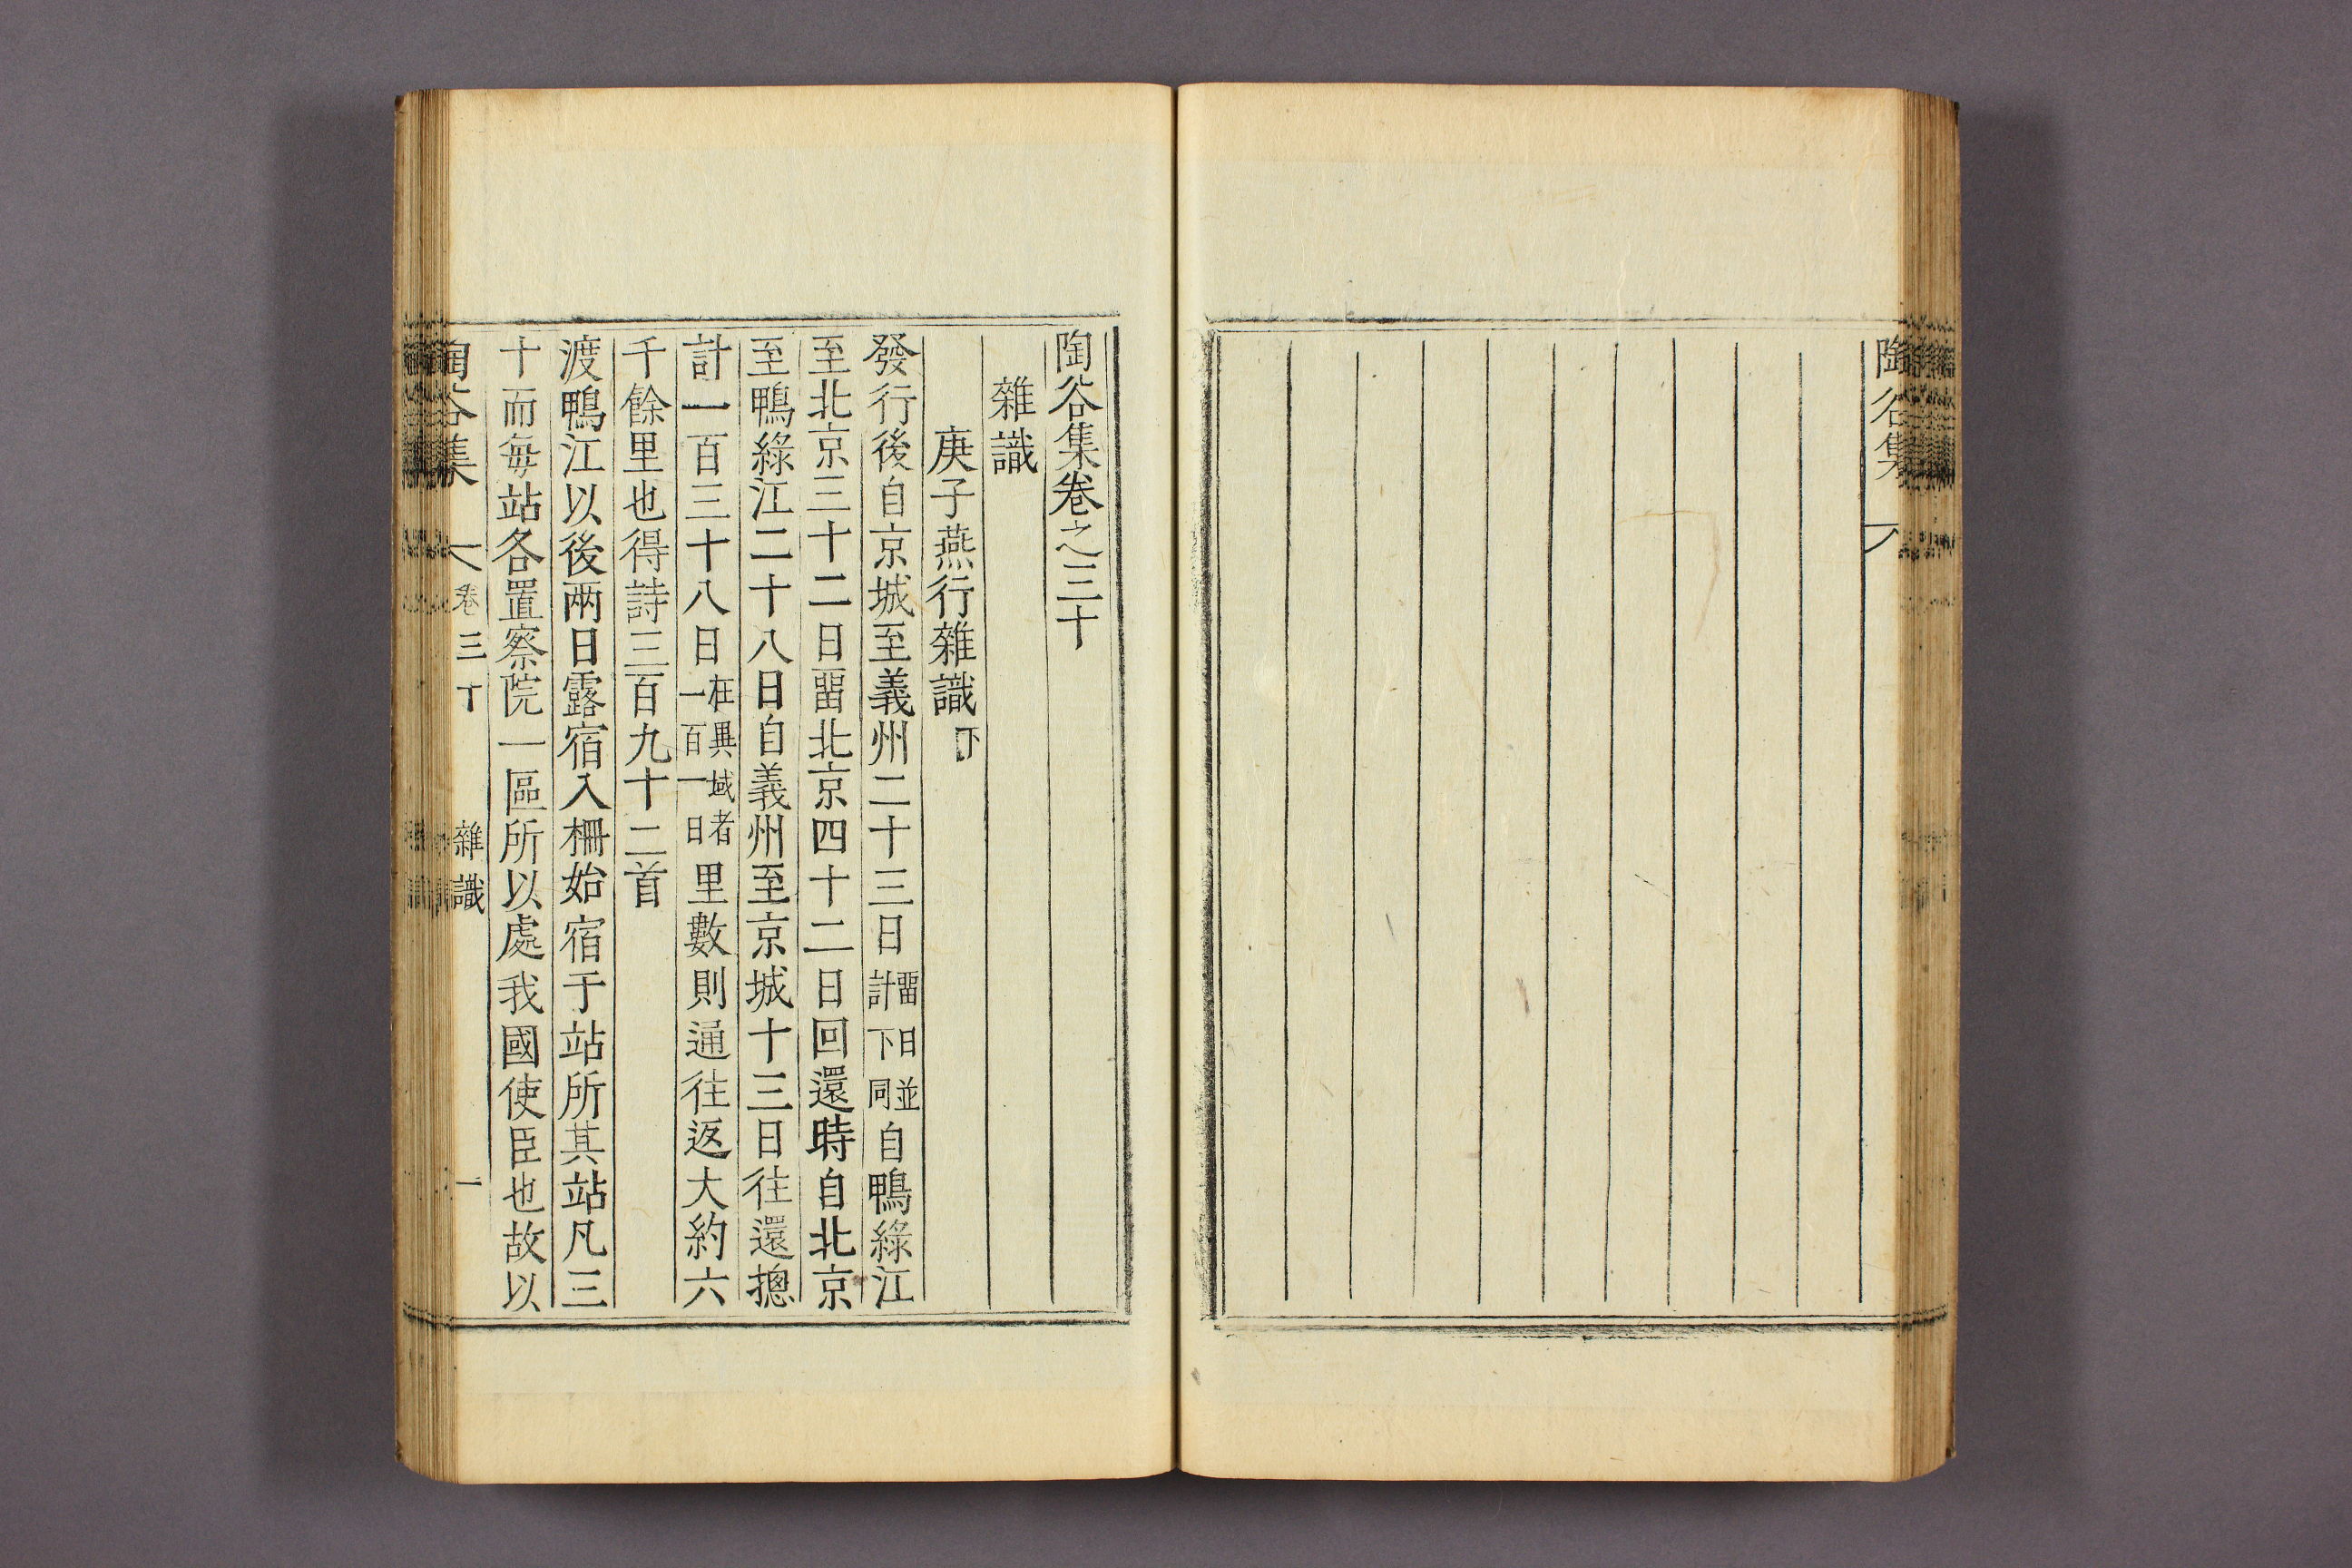 陶谷集
陶谷集卷之三十
雜識
庚子燕行雜識下
發行後自京城至義州二十三日留日並計下同自鴨綠江
至北京三十二日留北京四十二日回還時自北京
至鴨綠江二十八日自義州至京城十三日往還摠
計一百三十八日在異域者一百一日里數則通往返大約六
千餘里也得詩三百九十二首
渡鴨江以後兩日露宿入柵始宿于站所其站凡三
十而每站各置察院一區所以處我國使臣也故以
陶谷集 卷三十 雜識 一